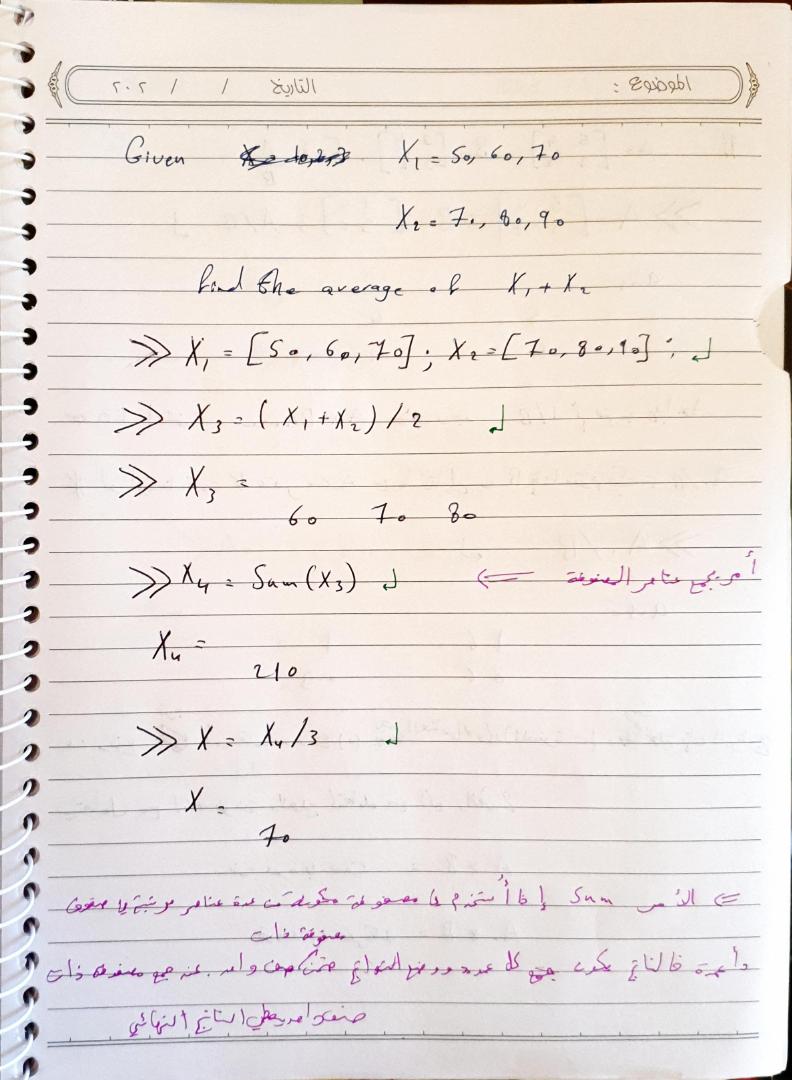 الموضوع : التاريخ / / ٢٠٢
Given X₁ = 50, 60, 70
X₂ = 70, 80, 90
find the average of X₁ + X₂
>> X₁ = [50, 60, 70]; X₂ = [70, 80, 90]; ↲
>> X₃ = (X₁ + X₂) / 2 ↲
>> X₃ =
60 70 80
>> X₄ = Sum(X₃) ↲ <= أمر يجمع عناصر المصفوفة
X₄ =
210
>> X = X₄/3 ↲
X =
70
<= الأمر Sum إذا أستخدم في مصفوفة مكونة من عدة عناصر مرتبة في صفوف
مصفوفة ذات
وأعمدة فالناتج يكون جمع كل عمود ووضع النواتج ضمن صف واحد. عند جمع مصفوفة ذات
صف واحد يعطي الناتج النهائي